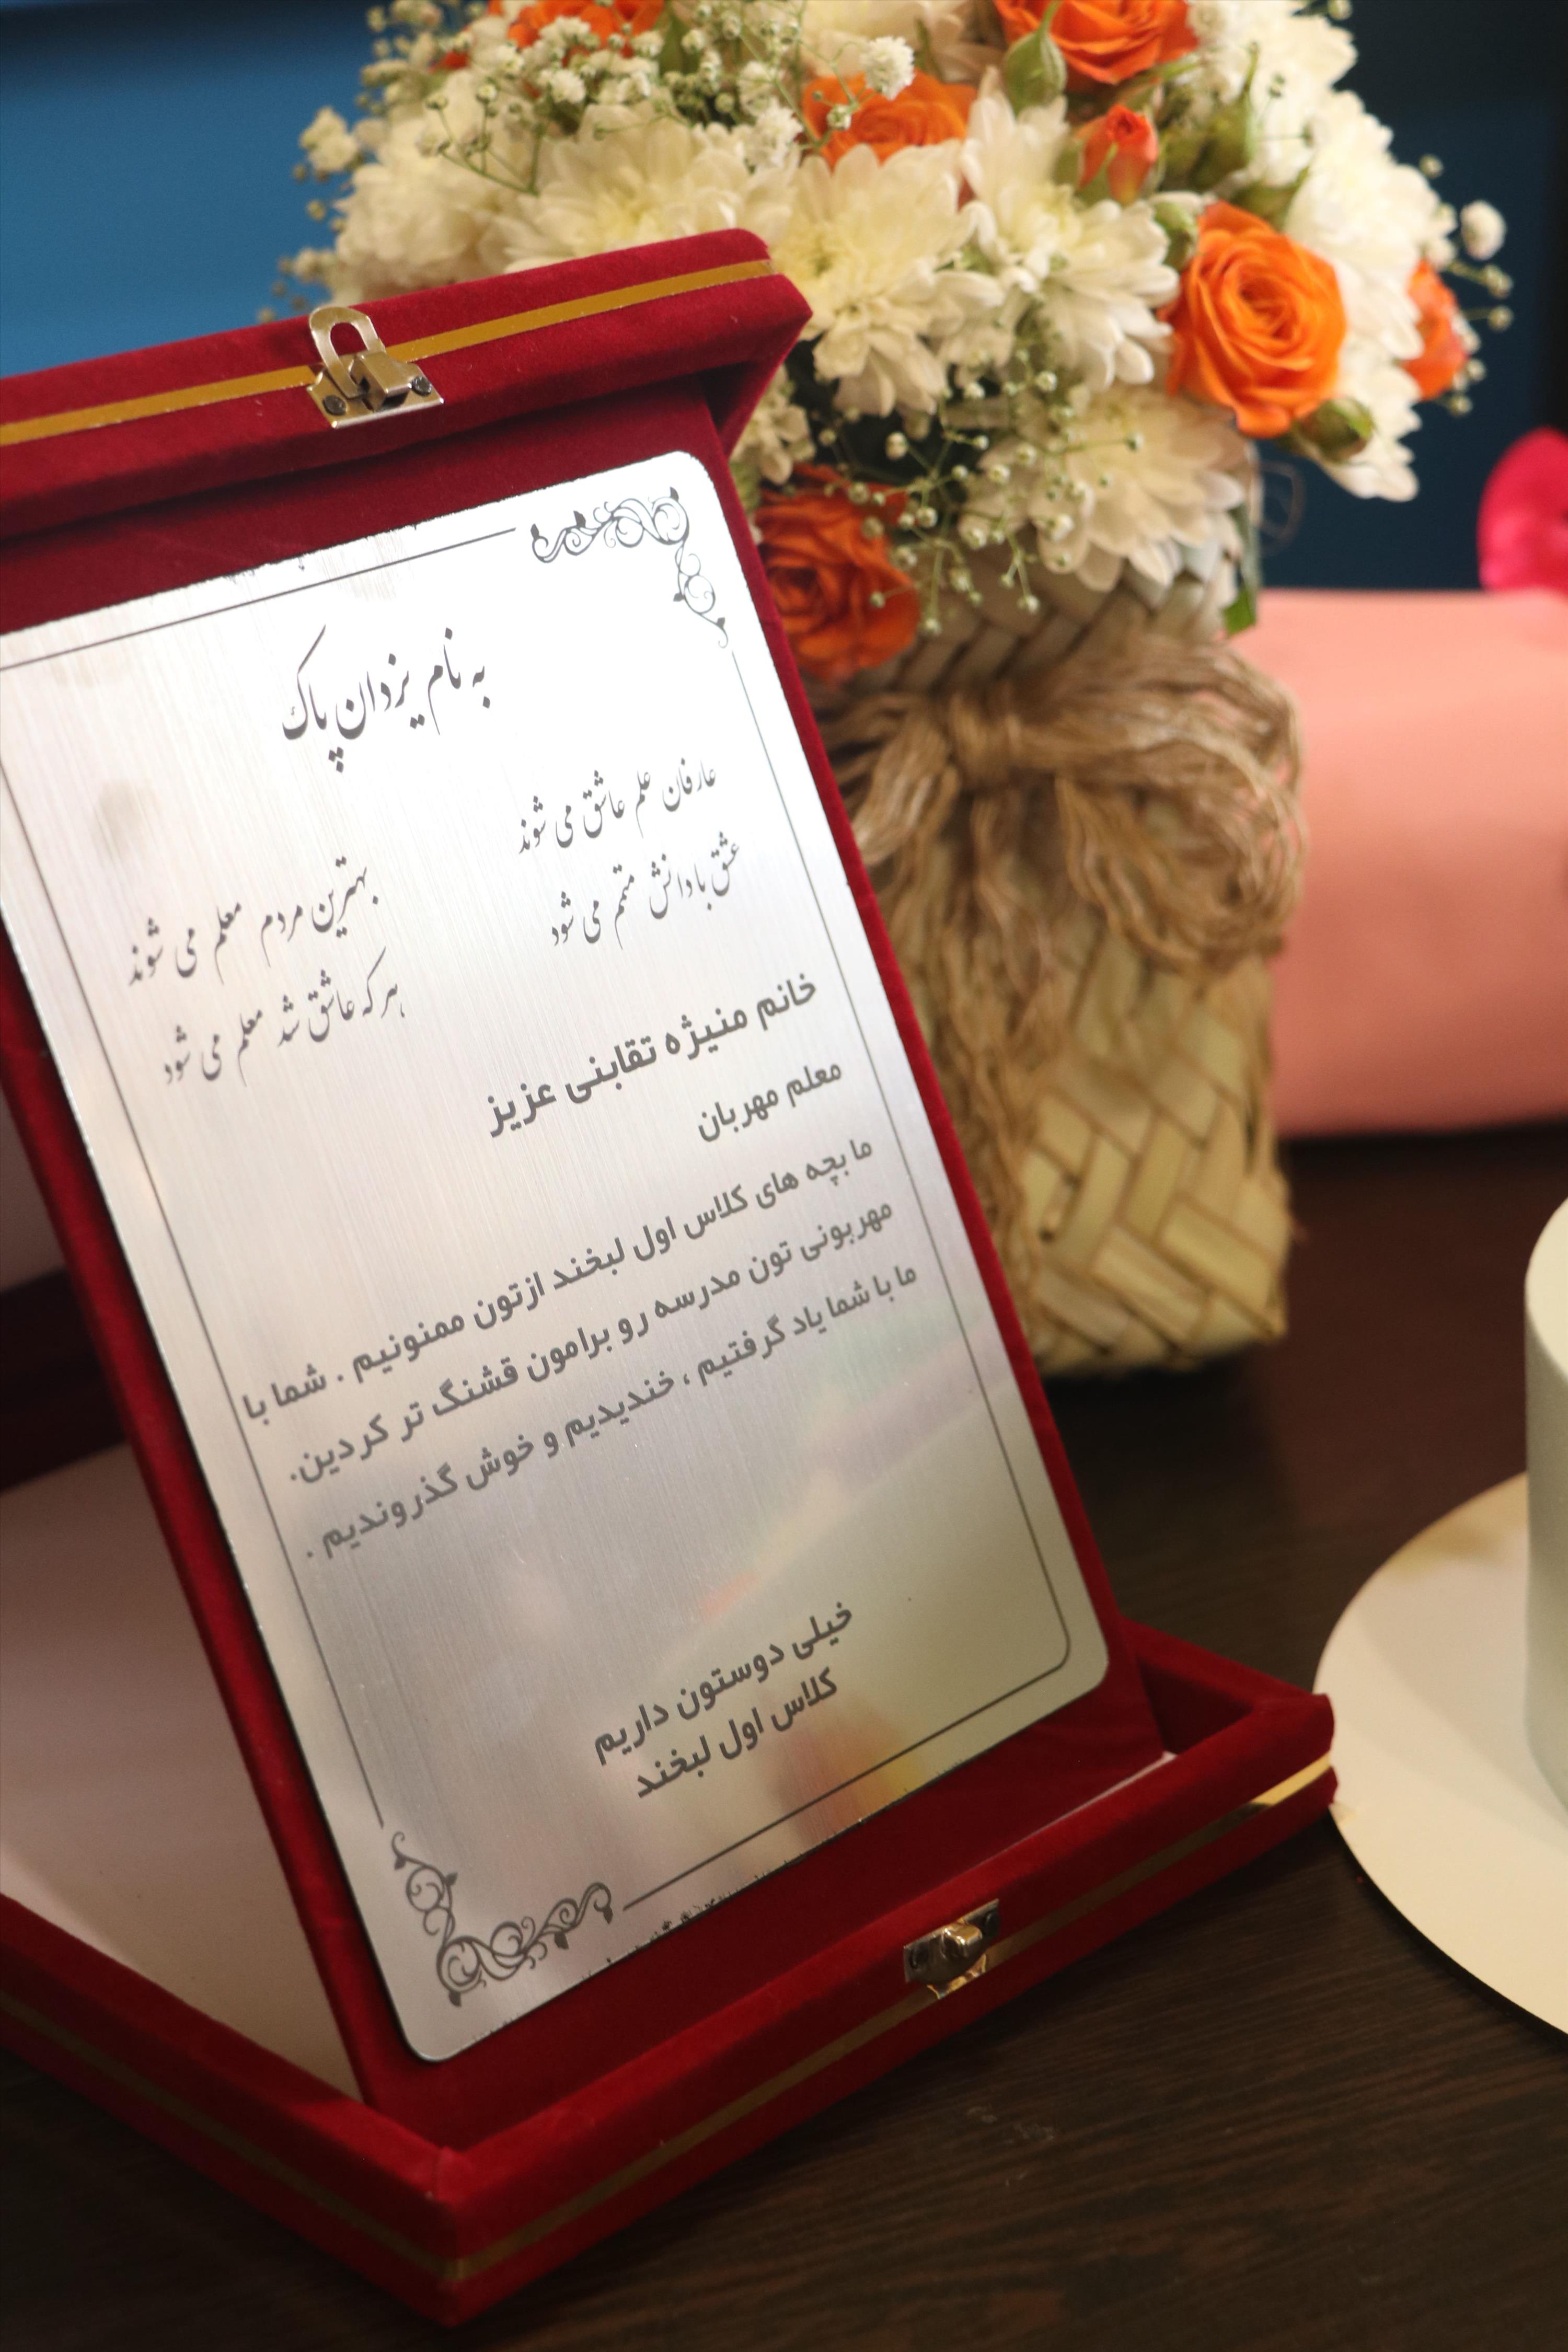 به نام یزدان پاک
عارفان علم عاشق می شوند
بهترین مردم معلم می شوند
عشق با دانش متمم می شود
هر که عاشق شد معلم می شود
خانم منیژه تقابنی عزیز
معلم مهربان
ما بچه های کلاس اول لبخند ازتون ممنونیم . شما با
مهربونی تون مدرسه رو برامون قشنگ تر کردین.
ما با شما یاد گرفتیم ، خندیدیم و خوش گذروندیم .
خیلی دوستون داریم
کلاس اول لبخند